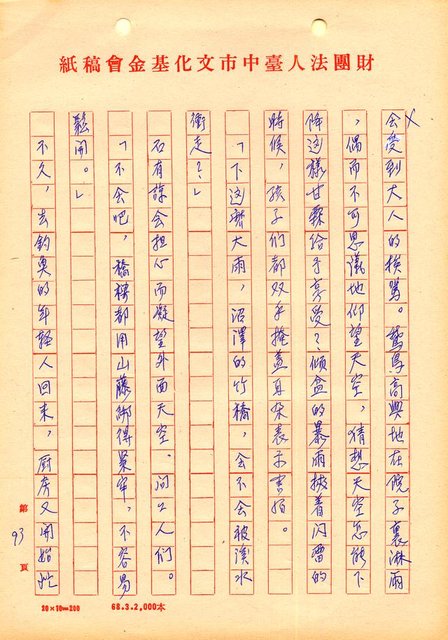 財團法人臺中市文化基金會稿紙
会受到大人的挨罵。鴛鴦高興地在院子裏淋雨
，偶而不可思議地仰望天空，猜想天空怎能下
降這樣甘霖给予享受？傾盆的暴雨披着闪雷的
時候，孩子们都双手掩盖耳朵表示害怕。
「下這麼大雨，沼澤的竹橋，会不会被溪水
衝走？」
石有諒会担心而凝望外面天空。问工人们。
「不会吧，橋樑都用山藤綁得累牢，不容易
鬆開。」
不久，去釣魚的年輕人回来，厨房又開始忙
第93頁
20×10=200
68.3.2,000本